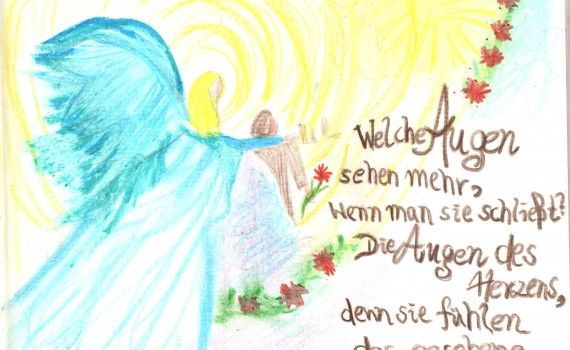 Welche Augen
sehen mehr,
wenn man sie schließt?
Die Augen des
Herzens,
denn sie fühlen
das gesehene